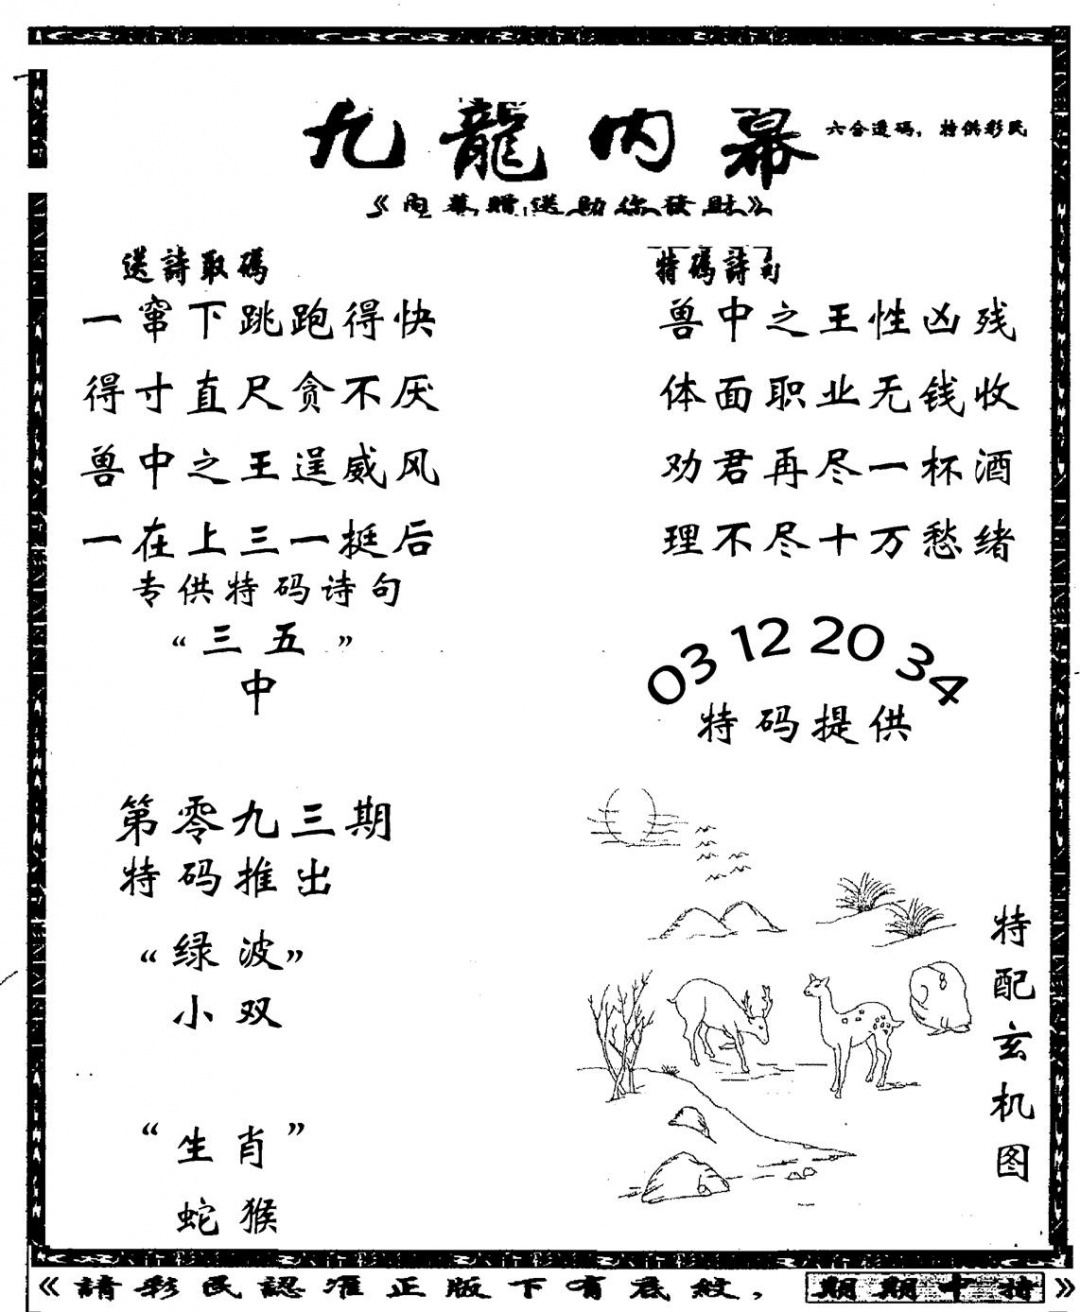 九龍内幕
六合透码，特供彩民
《内幕贈送助你發財》
送詩取碼
一窜下跳跑得快
得寸直尺贪不厌
兽中之王逞威风
一在上三一挺后
专供特码诗句
“三五”
中
特碼詩句
兽中之王性凶残
体面职业无钱收
劝君再尽一杯酒
理不尽十万愁绪
03 12 20 34
特码提供
第零九三期
特码推出
“绿波”
小双
“生肖”
蛇猴
特配玄机图
《請彩民認准正版下有底紋，期期中特》